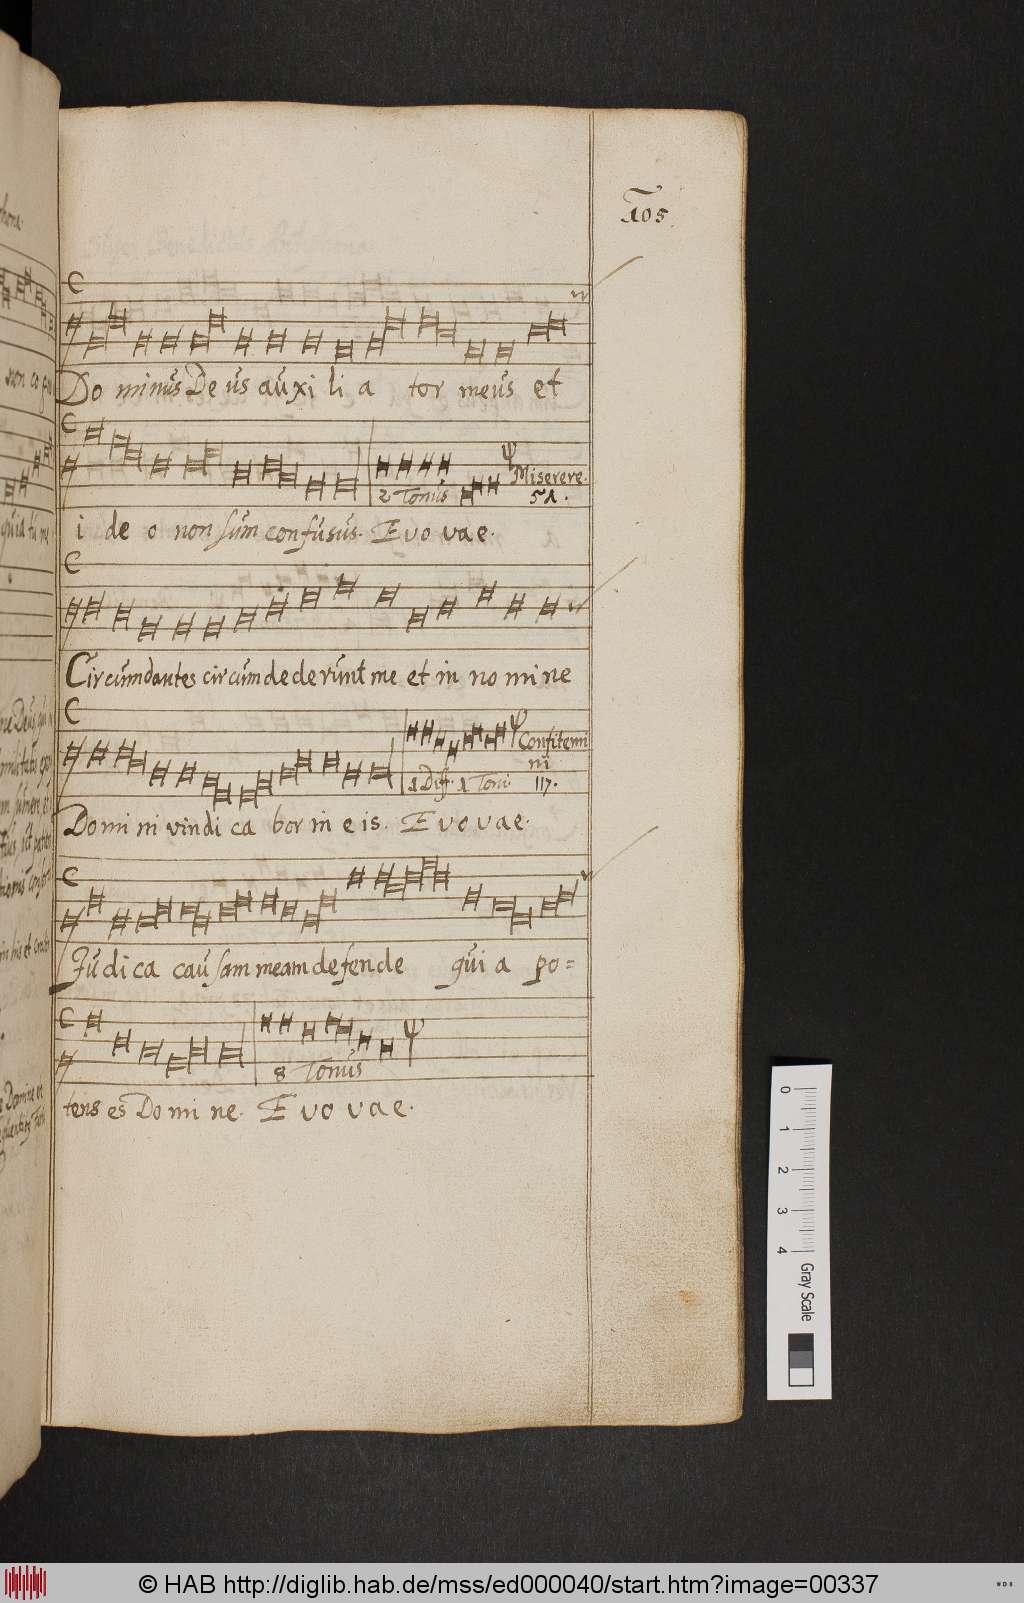 105.
Do minus De us auxi li a tor meus et
Miserere.
2 Tonus 51.
i de o non sum confusus. Evovae.
Circumdantes circumdederunt me et in no mi ne
Confitemi
ni
1 Diff. 1 Toni 117.
Domi ni vindi ca bor in e is. Evovae.
Judica causam meam defende qui a po=
8 Tonus
tens es Domi ne. Evovae.
non co
quia tu me
0 1 2 3 4 Gray Scale
© HAB http://diglib.hab.de/mss/ed000040/start.htm?image=00337